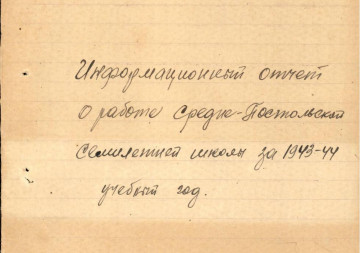 Информационный отчет
о работе Средне-Постольской
семилетней школы за 1943-44
учебный год.